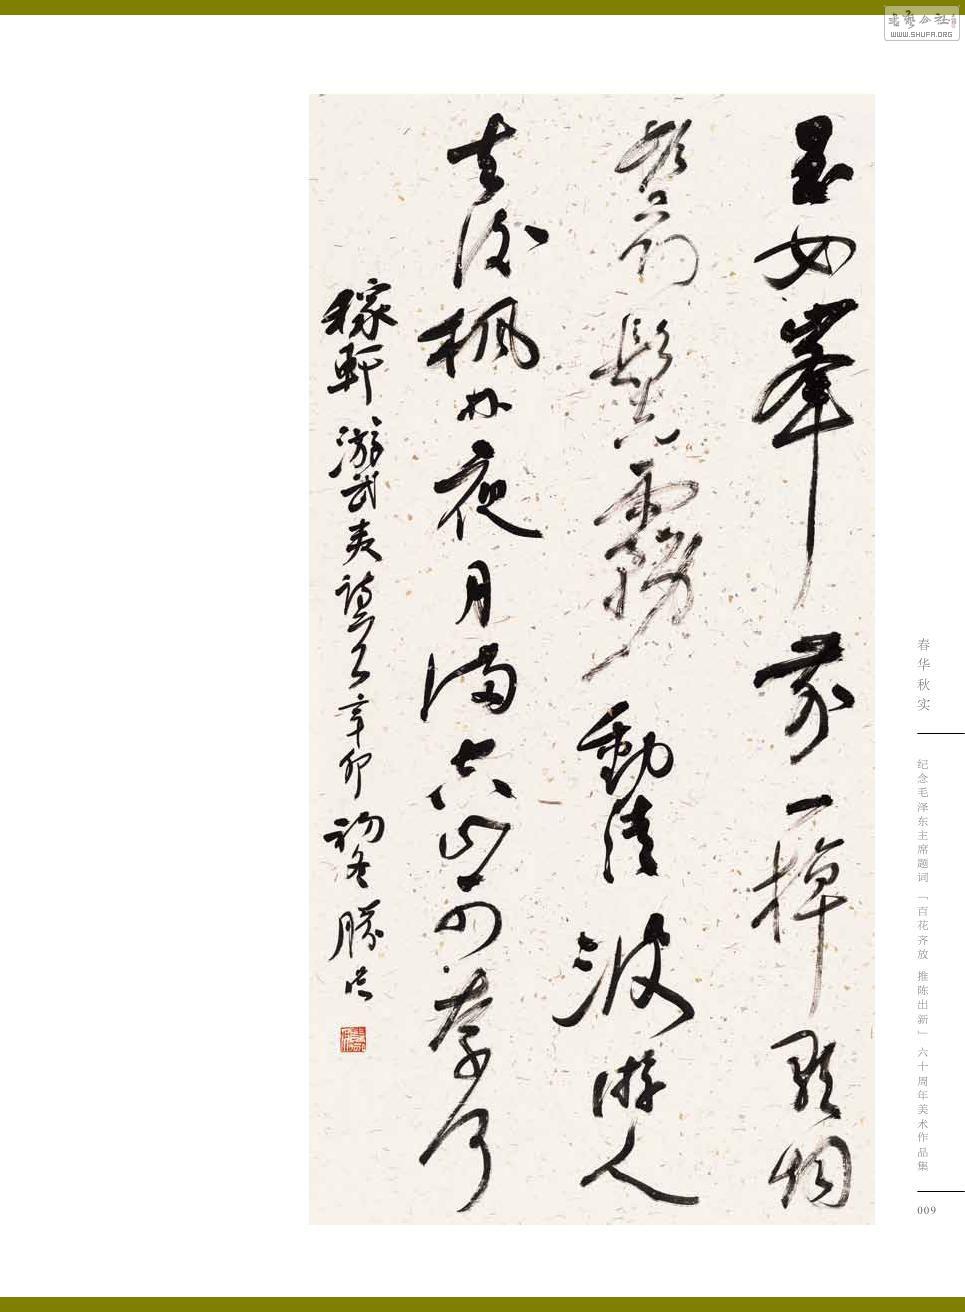 WWW.SHUFA.ORG
玉女峯前一棹歌烟
霧動清波游人
去後楓林夜月满空山可奈何
稼軒游武夷詩 辛卯初冬
春华秋实
纪念毛泽东主席题词「百花齐放 推陈出新」六十周年美术作品集
009